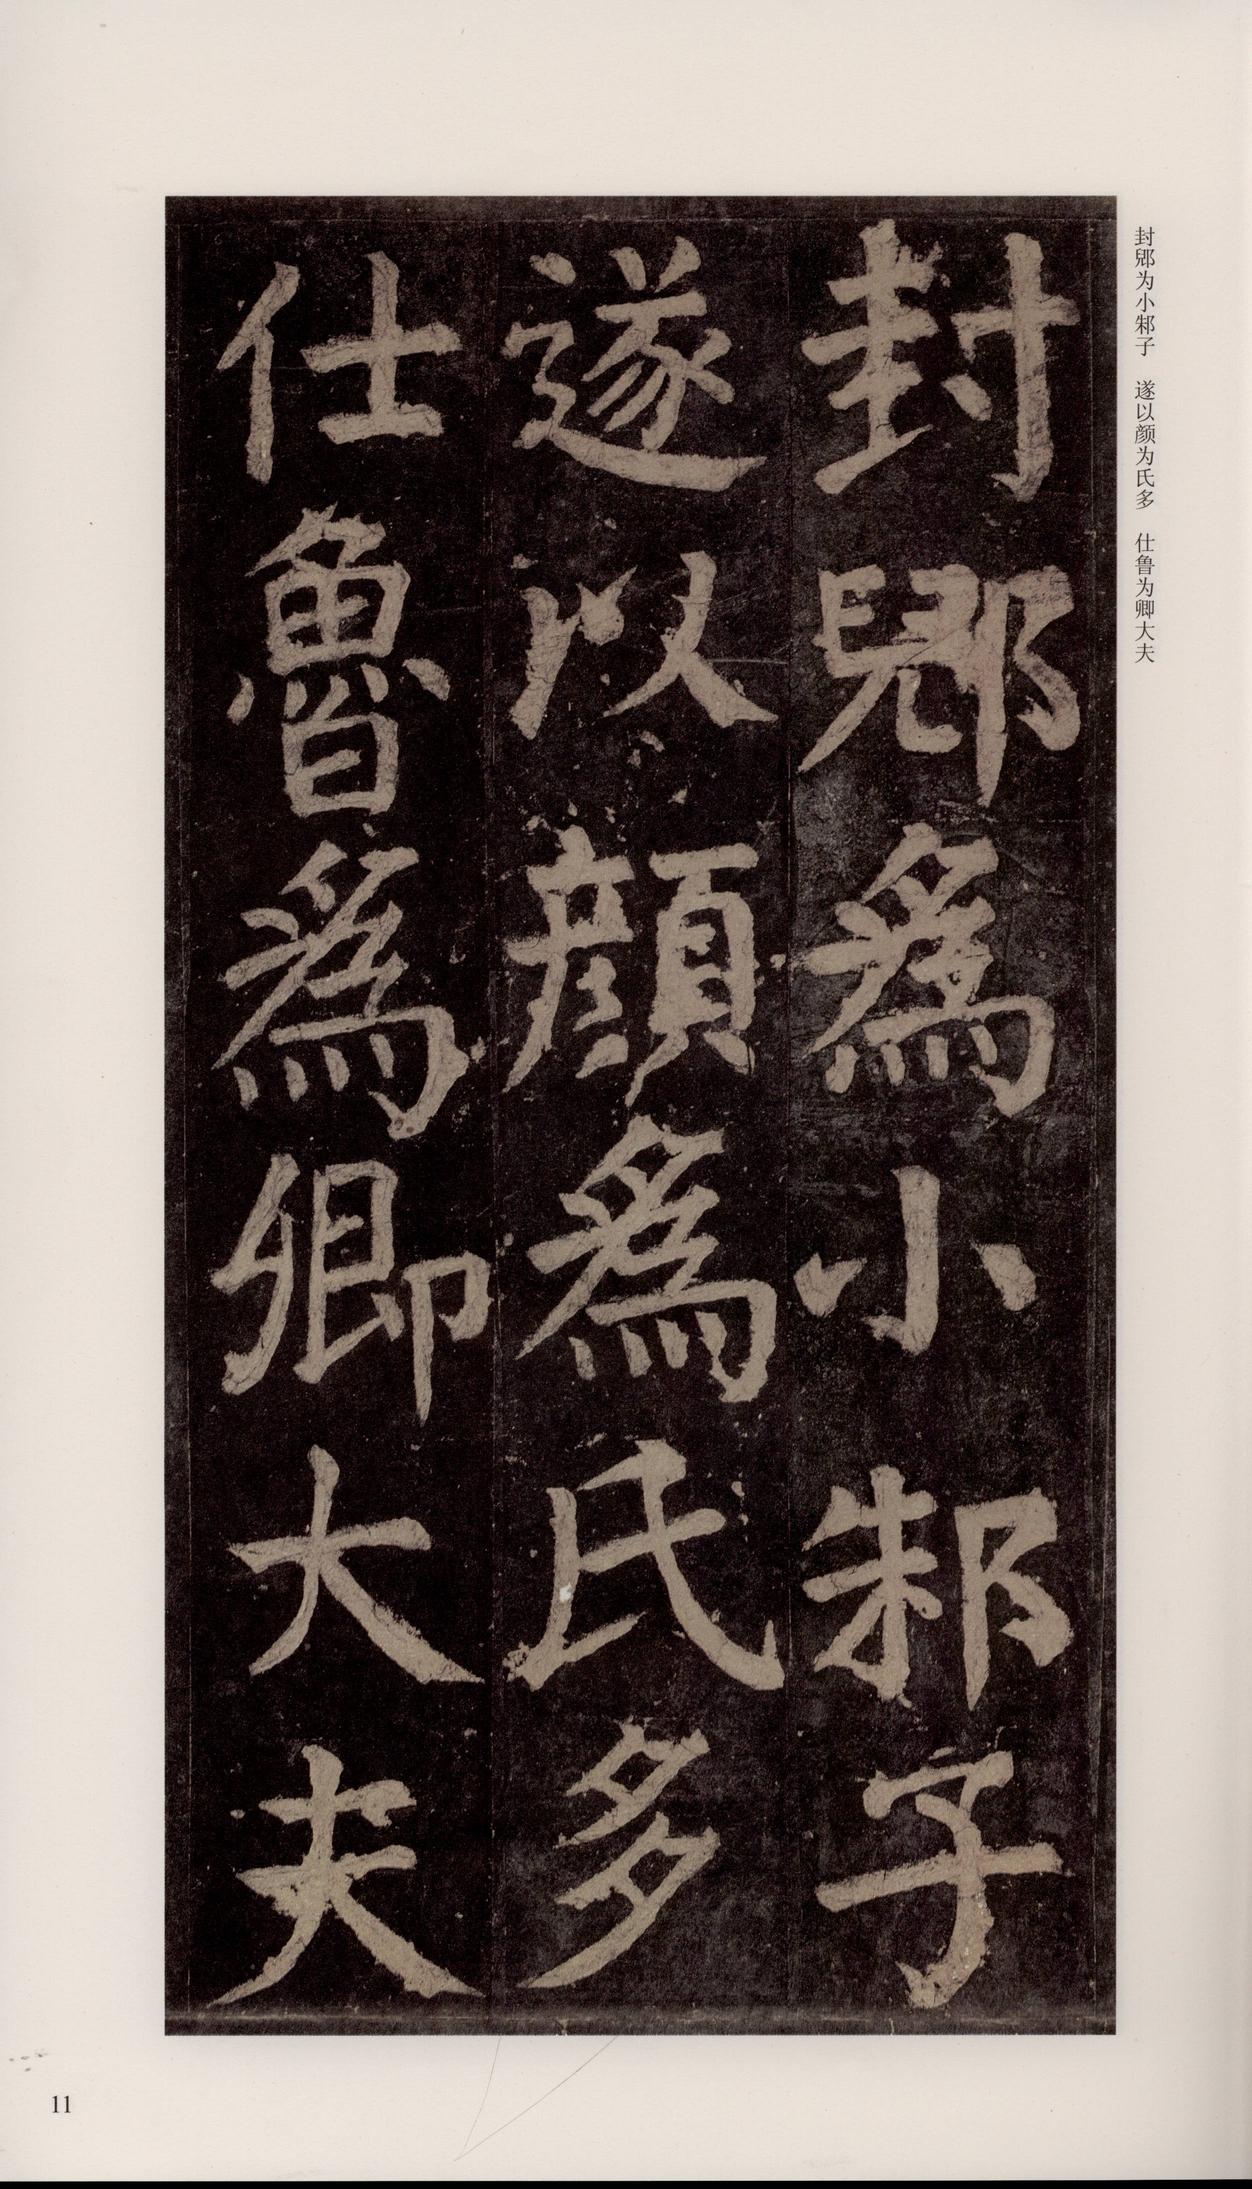 封郳为小邾子　遂以颜为氏多　仕鲁为卿大夫
封郳爲小邾子
遂以顏爲氏多
仕魯爲卿大夫
11